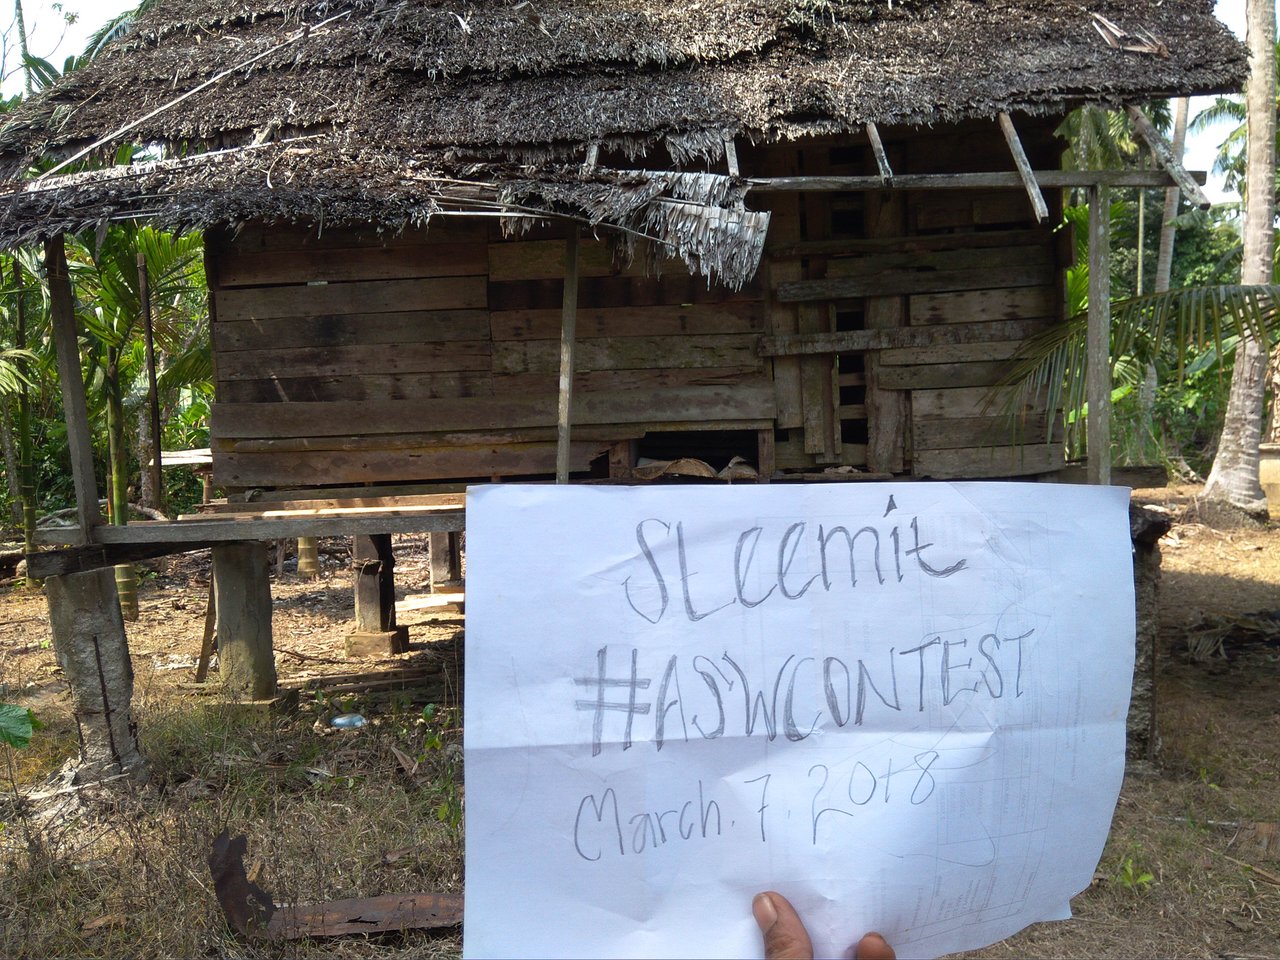 Steemit
#ASWCONTEST
March. 7. 2018